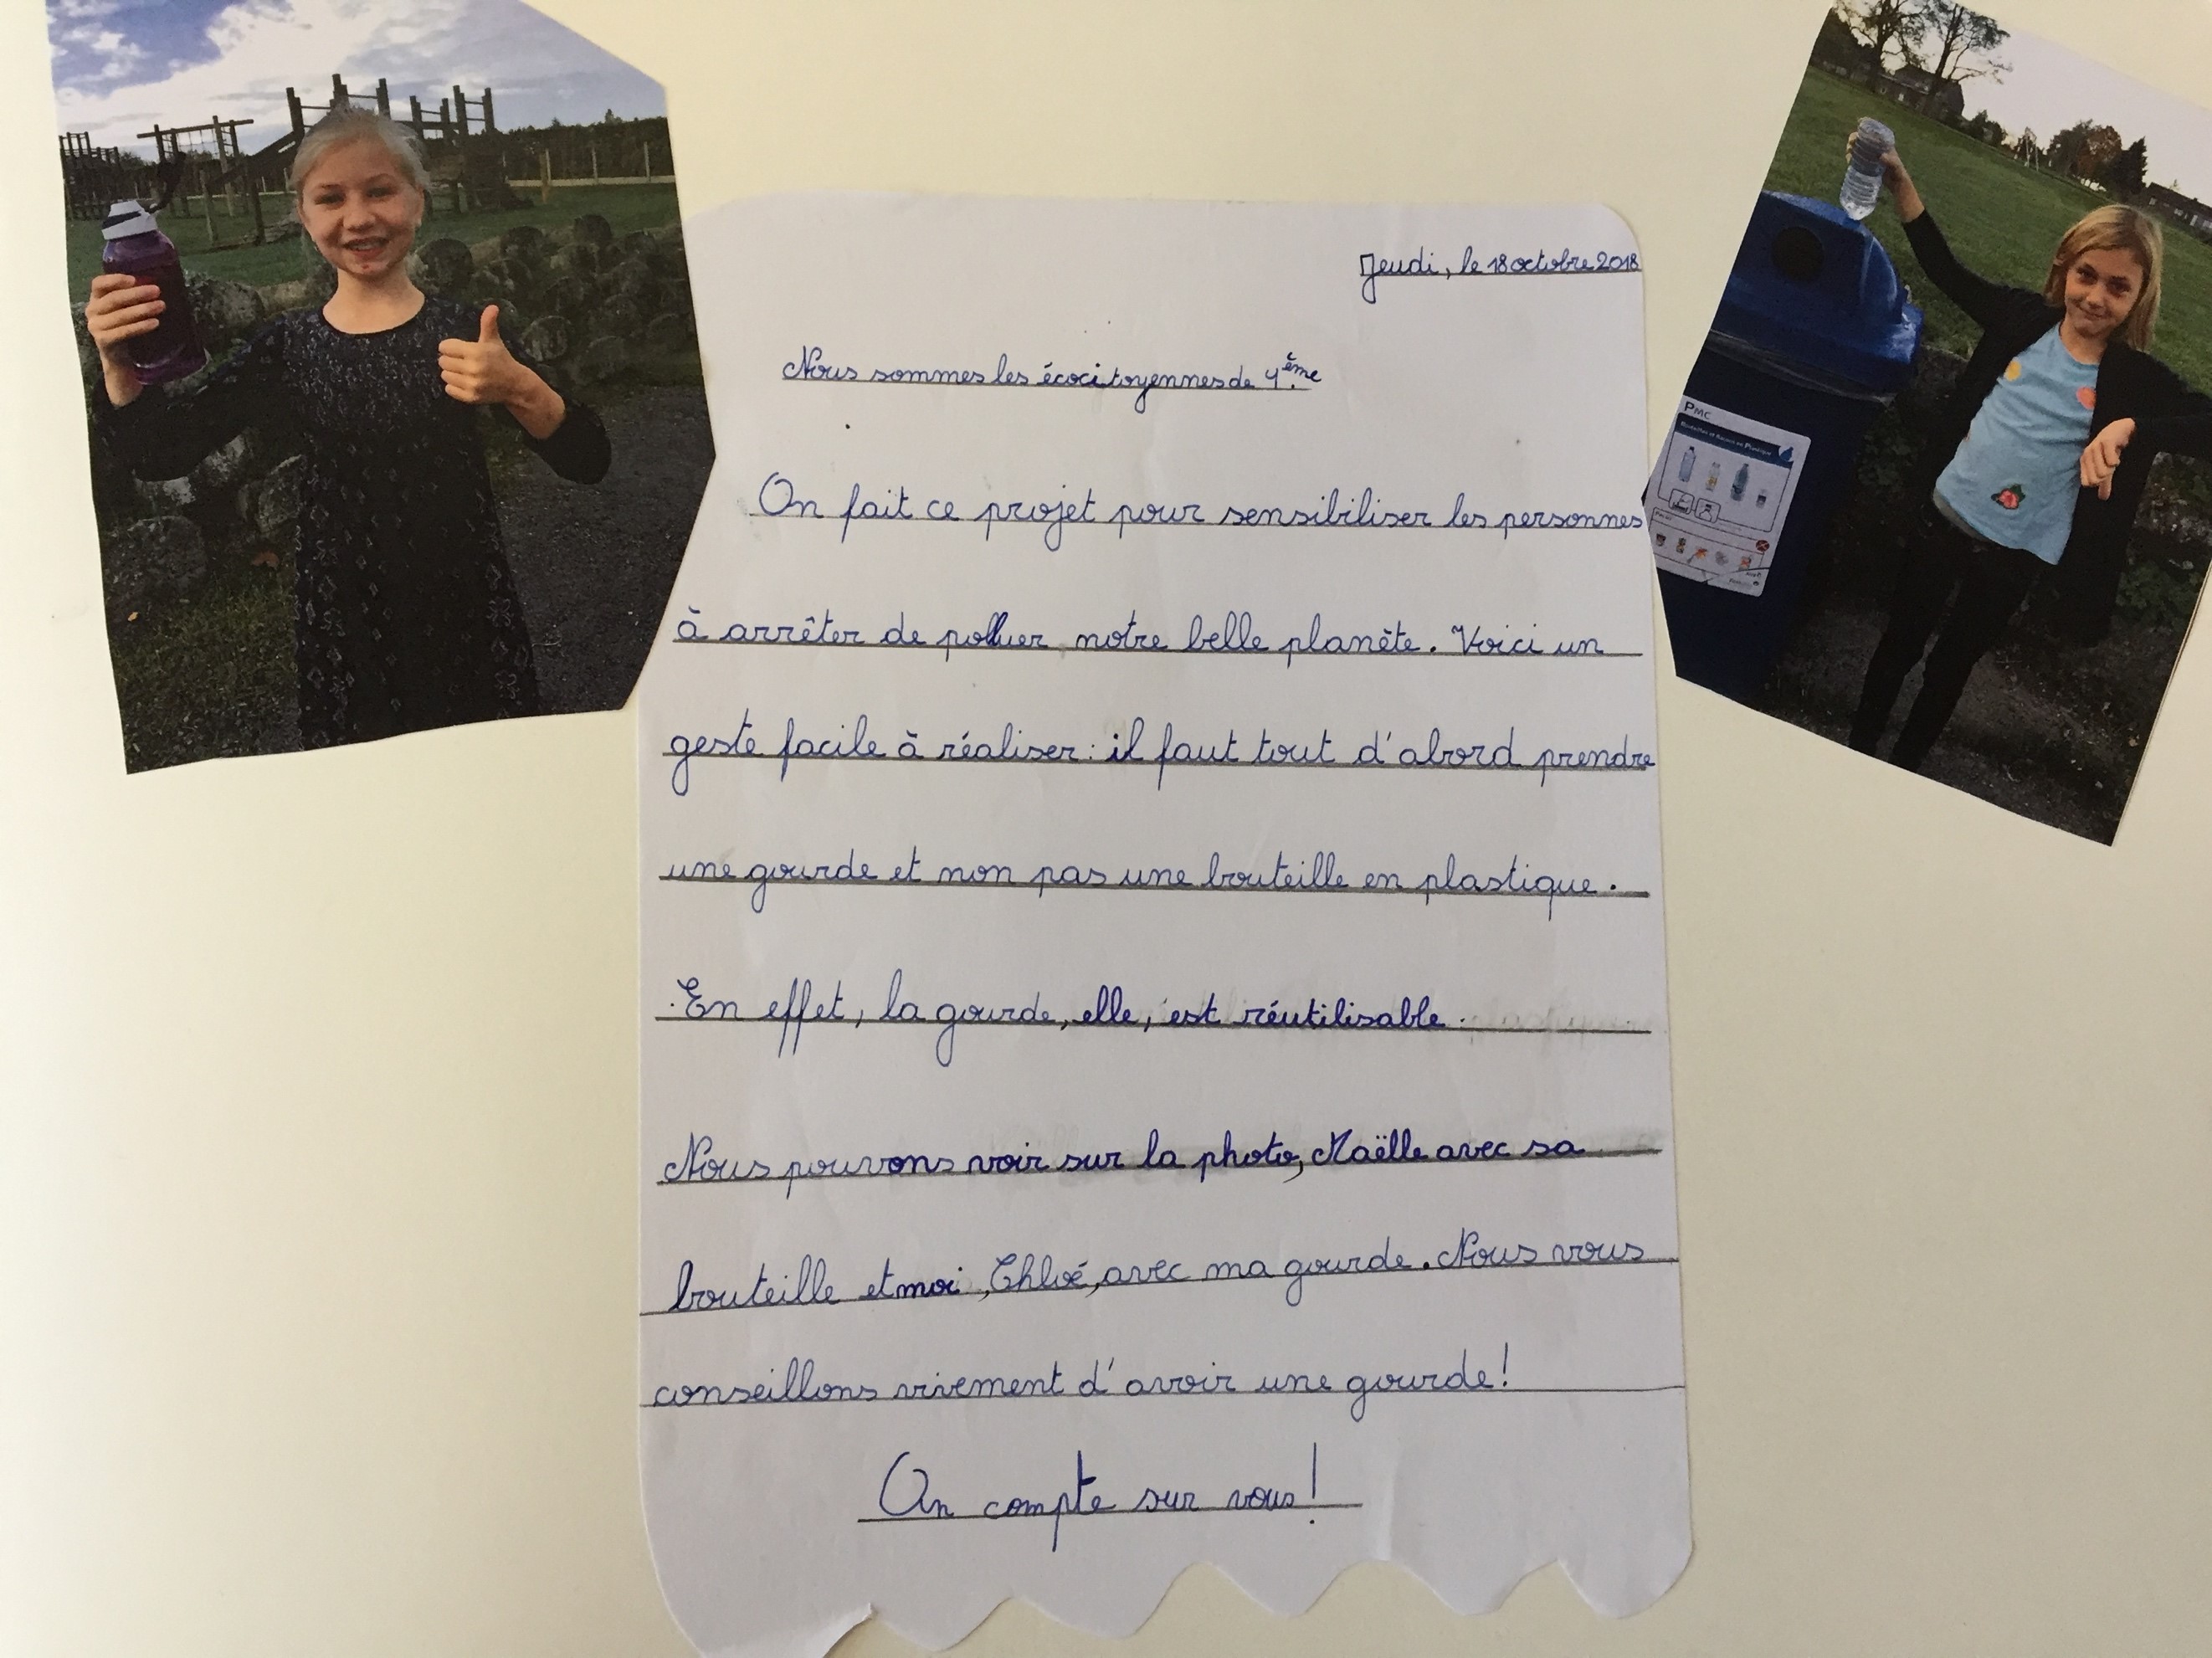 Jeudi, le 18 octobre 2018
Nous sommes les écocitoyennes de 4ème
On fait ce projet pour sensibiliser les personnes
à arrêter de polluer notre belle planète. Voici un
geste facile à réaliser : il faut tout d'abord prendre
une gourde et non pas une bouteille en plastique.
En effet, la gourde, elle, est réutilisable.
Nous pouvons voir sur la photo, Maëlle avec sa
bouteille et moi, Chloé, avec ma gourde. Nous vous
conseillons vivement d'avoir une gourde!
On compte sur vous!
PMC
Bouteilles et flacons en Plastique